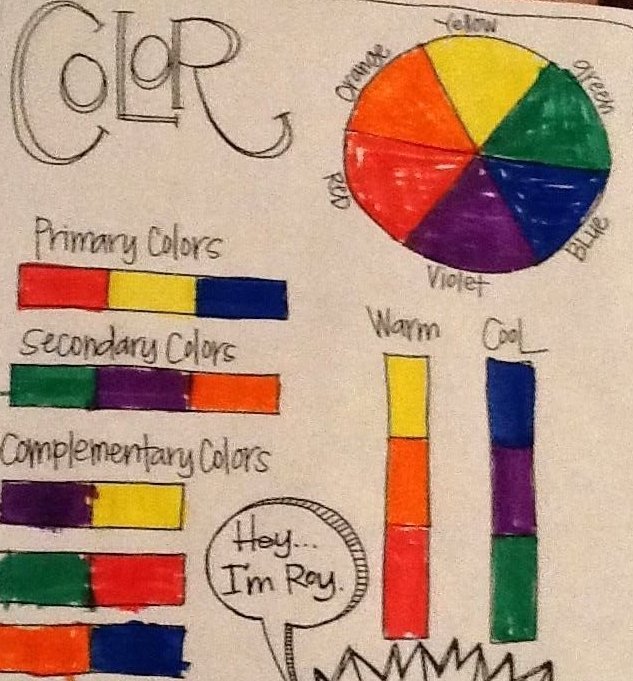 COLOR
Yellow
Orange
green
RED
BLUE
Violet
Primary Colors
Secondary Colors
Complementary Colors
Warm
Cool
Hey...
I'm Roy.